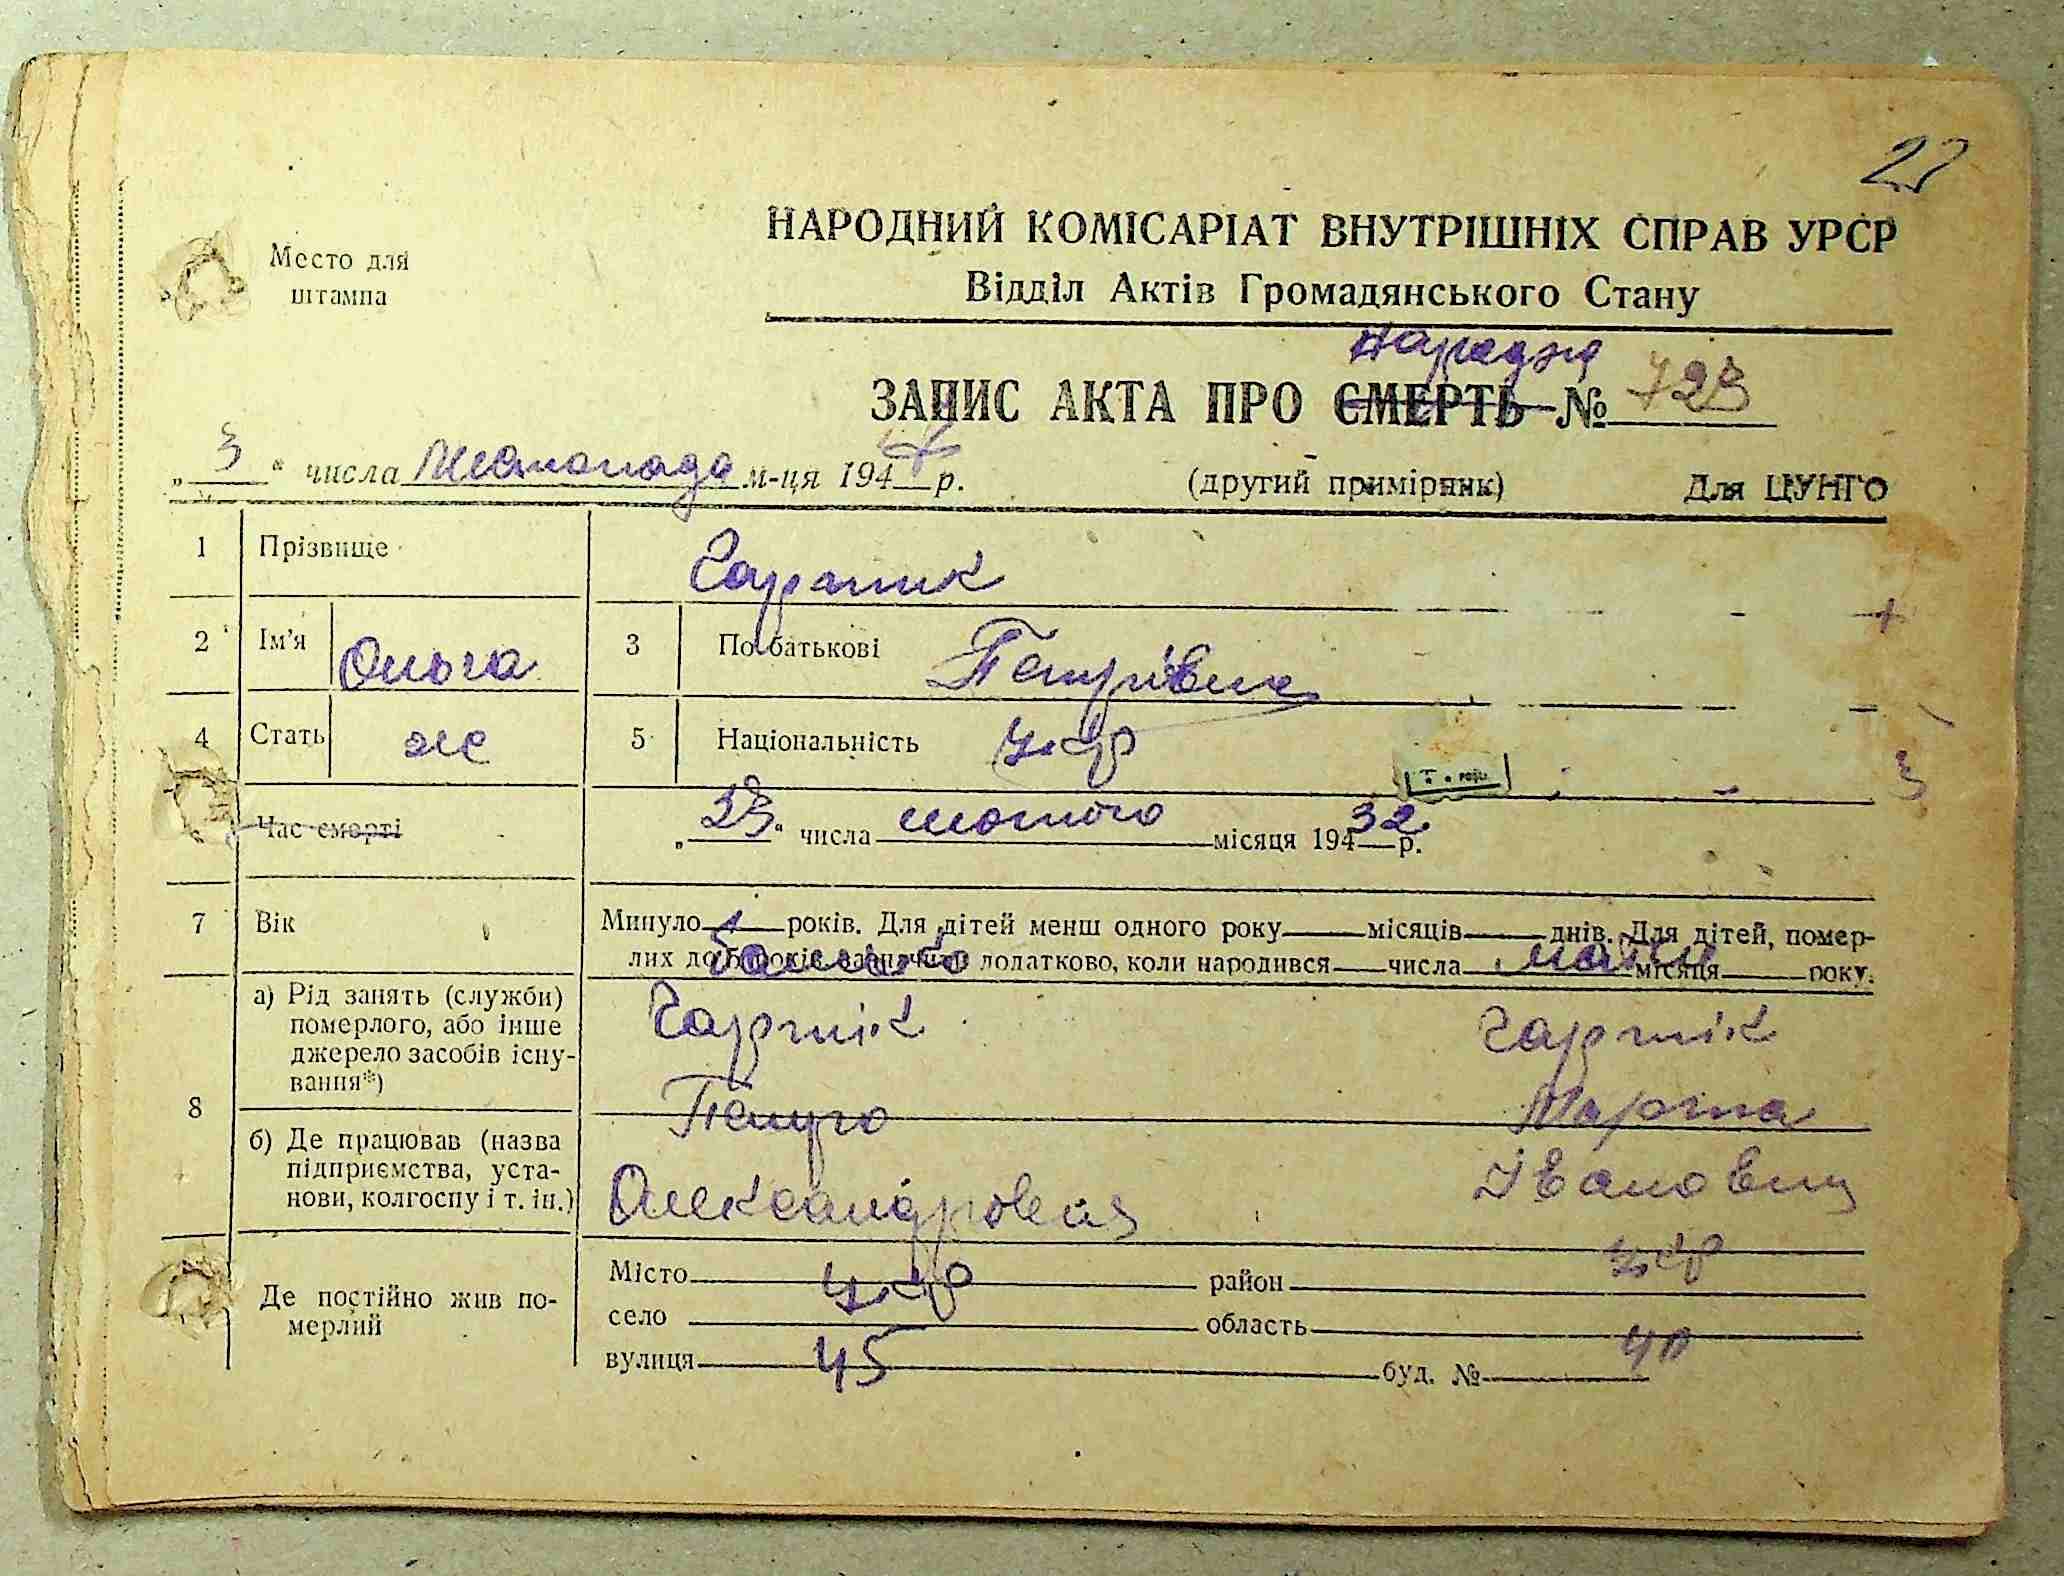 22
Место для
штампа
НАРОДНИЙ КОМІСАРІАТ ВНУТРІШНІХ СПРАВ УРСР
Відділ Актів Громадянського Стану
Народж
ЗАПИС АКТА ПРО СМЕРТЬ № 723
„ 3 " числа Жовтопада м-ця 194 р.
(другий примірник) Для ЦУНГО
1 Прізвище
2 Ім'я Ольга 3 По батькові Петрівна
4 Стать жс 5 Національність укр
Час смерті „ 23 " числа лютого місяця 194 32 р.
7 Вік Минуло років. Для дітей менш одного року місяців днів. Для дітей, помер-
лих до років зазначити додатково, коли народився числа місяця року.
батько мати
8 а) Рід занять (служби)
померлого, або інше
джерело засобів існу-
вання*)
Гартік Гартік
Петро Марта
б) Де працював (назва
підприємства, уста-
нови, колгоспу і т. ін.)
Олександрович Івановна
Де постійно жив по-
мерлий
Місто укр район укр
село область
вулиця 45 буд. № 40